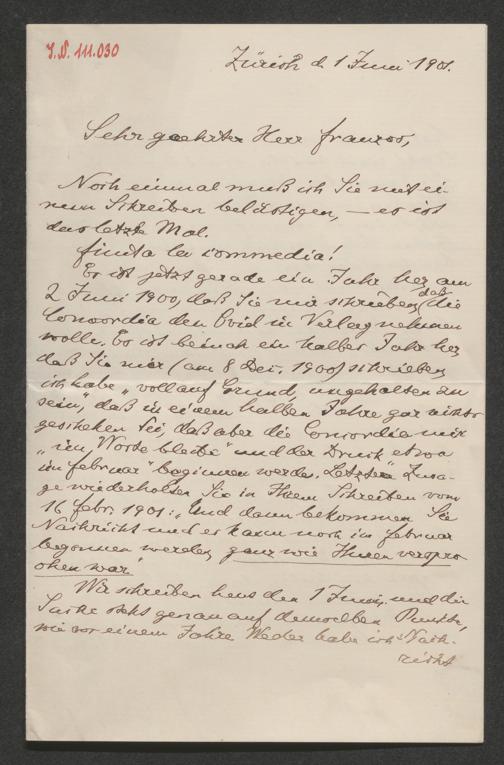 J.N. 111.030
Zürich d. 1 Juni 1901.
Sehr geehrter Herr Franzos,
Noch einmal muß ich Sie mit ei-
nem Schreiben belästigen, – es ist
das letzte Mal.
finita la commedia!
Es ist jetzt gerade ein Jahr her, am
2 Juni 1900, daß Sie mir schrieben, daß die
Concordia den Ovid in Verlag nehmen
wolle. Es ist beinah ein halber Jahr her,
daß Sie mir (am 8 Dez. 1900) schrieben,
ich habe „vollauf Grund, ungehalten zu
sein", daß in einem halben Jahre gar nichts
geschehen sei, daß aber die Concordia mir
„im Worte bleibe" und der Druck etwa
im februar" beginnen werde. Letztere Zusa-
ge wiederholten Sie in Ihrem Schreiben vom
16 febr. 1901: „Und dann bekommen Sie
Nachricht und es kann noch im februar
begonnen werden, ganz wie Ihnen verspro-
chen war"
Wir schreiben heut den 1 Juni, und die
Sache steht genau auf demselben Punkte,
wie vor einem Jahre. Weder habe ich Nach-
richt